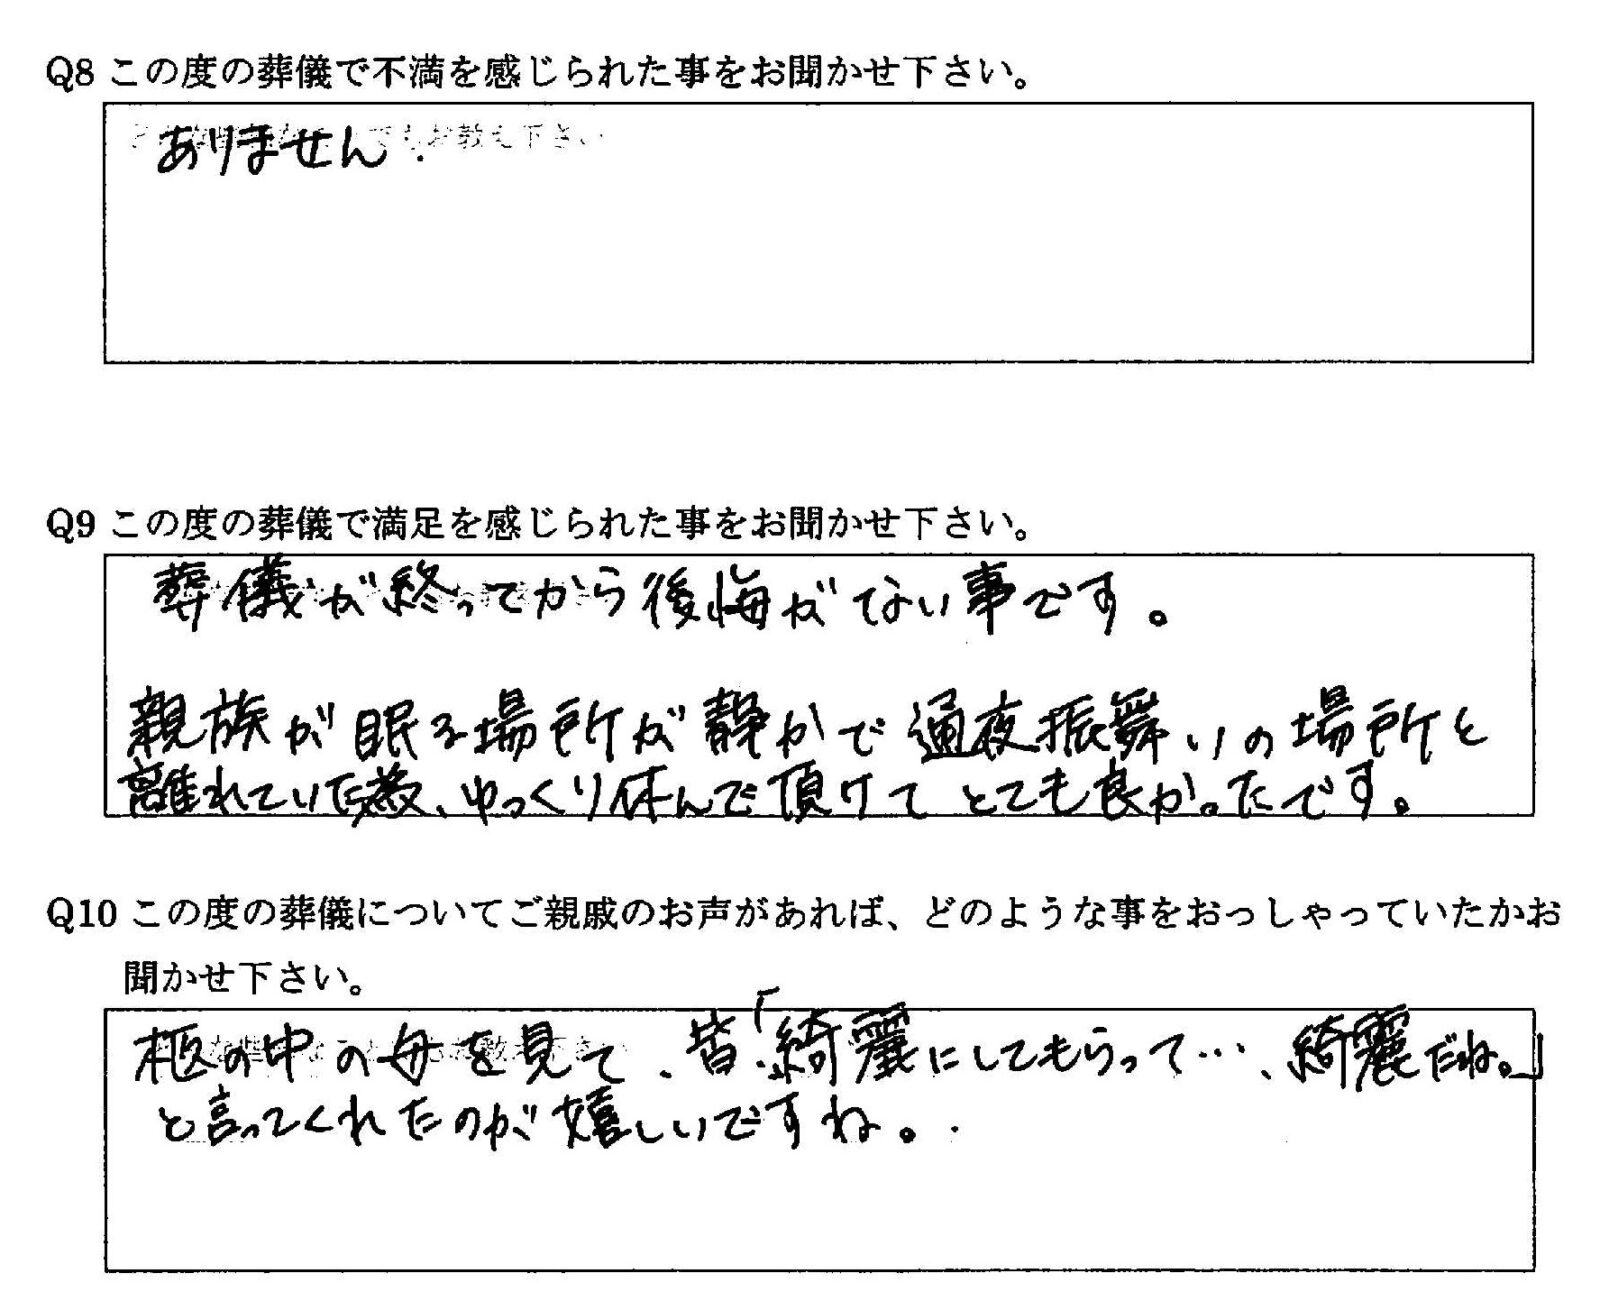 Q8 この度の葬儀で不満を感じられた事をお聞かせ下さい。
でもお教え下さい
ありません.
Q9 この度の葬儀で満足を感じられた事をお聞かせ下さい。
葬儀が終ってから後悔がない事です。
親族が眠る場所が静かで通夜振舞いの場所と
離れていた為、ゆっくり休んで頂けてとても良かったです。
Q10 この度の葬儀についてご親戚のお声があれば、どのような事をおっしゃっていたかお
聞かせ下さい。
柩の中の母を見て、皆「綺麗にしてもらって…、綺麗だね。」
と言ってくれたのが嬉しいですね。